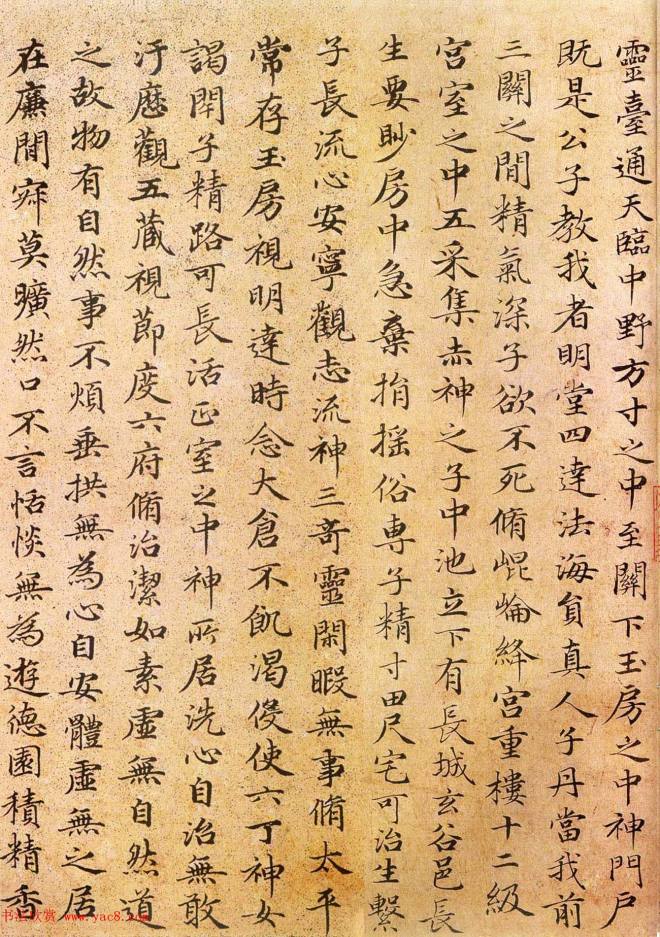 靈臺通天臨中野方寸之中至關下玉房之中神門戶
既是公子教我者明堂四達法海負真人子丹當我前
三關之間精氣深子欲不死脩崐崘絳宮重樓十二級
宮室之中五采集赤神之子中池立下有長城玄谷邑長
生要眇房中急棄捐搖俗專子精寸田尺宅可治生繫
子長流心安寧觀志流神三奇靈閑暇無事脩太平
常存玉房視明達時念大倉不飢渴伇使六丁神女
謁閇子精路可長活正室之中神所居洗心自治無敢
汙歷觀五藏視節度六府脩治潔如素虛無自然道
之故物有自然事不煩垂拱無為心自安體虛無之居
在廉間寂莫曠然口不言恬惔無為遊德園積精香
书法欣赏 www.yac8.com